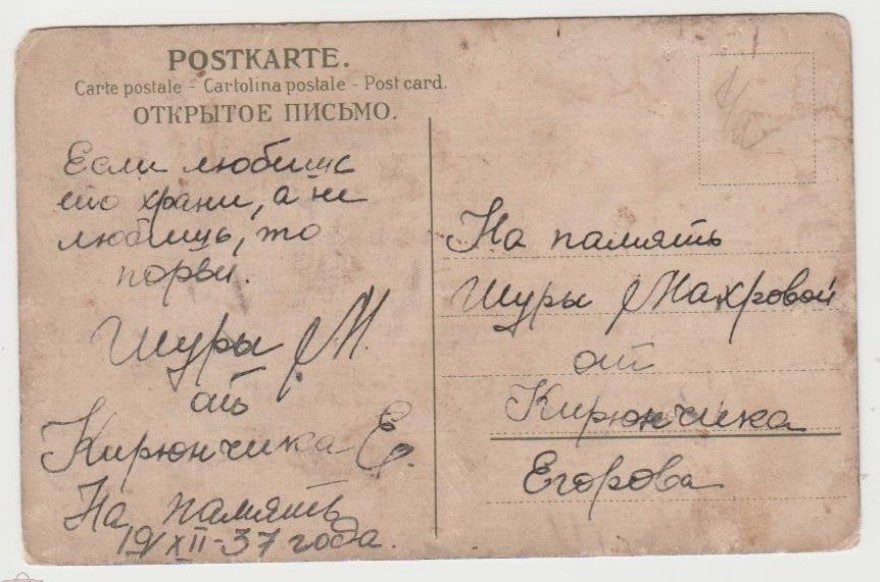 POSTKARTE.
Carte postale - Cartolina postale - Post card.
ОТКРЫТОЕ ПИСЬМО.
Если любишь
то храни, а не
любишь, то
порви.
Шуры М.
от
Кирюнчика Е.
На память
19/XII-37 года.
На память
Шуры Махровой
от
Кирюнчика
Егорова